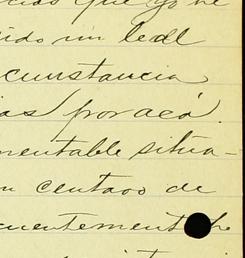 que yo he
ido un leal
cunstancia
ias por acá.
mentable situa-
n centavo de
cuentemente he